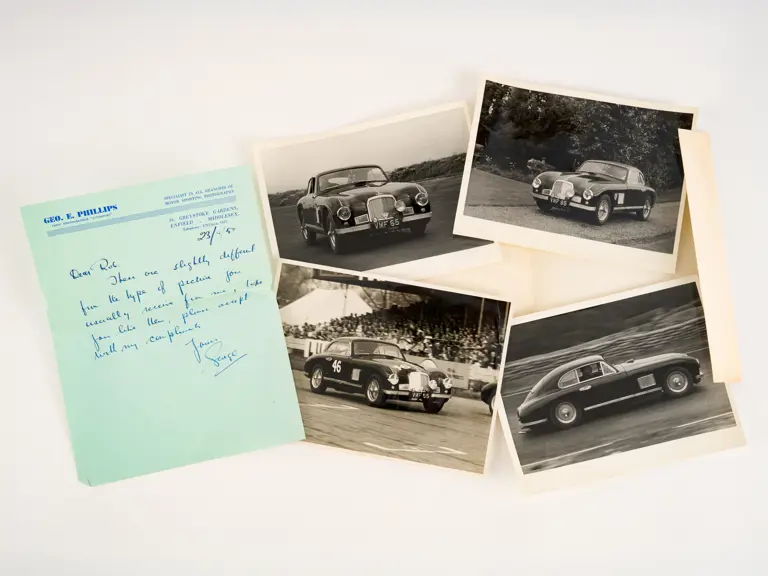 GEO. E. PHILLIPS
SPECIALIST IN ALL BRANCHES OF
MOTOR SPORTING PHOTOGRAPHY
GREYSTOKE GARDENS,
ENFIELD - MIDDLESEX.
Dear Rob
These are slightly different
from the type of picture you
usually receive from me. I hope
you like them, please accept
with my compliments
Yours
George
VMF 65
VMF 65
46
VMF 65